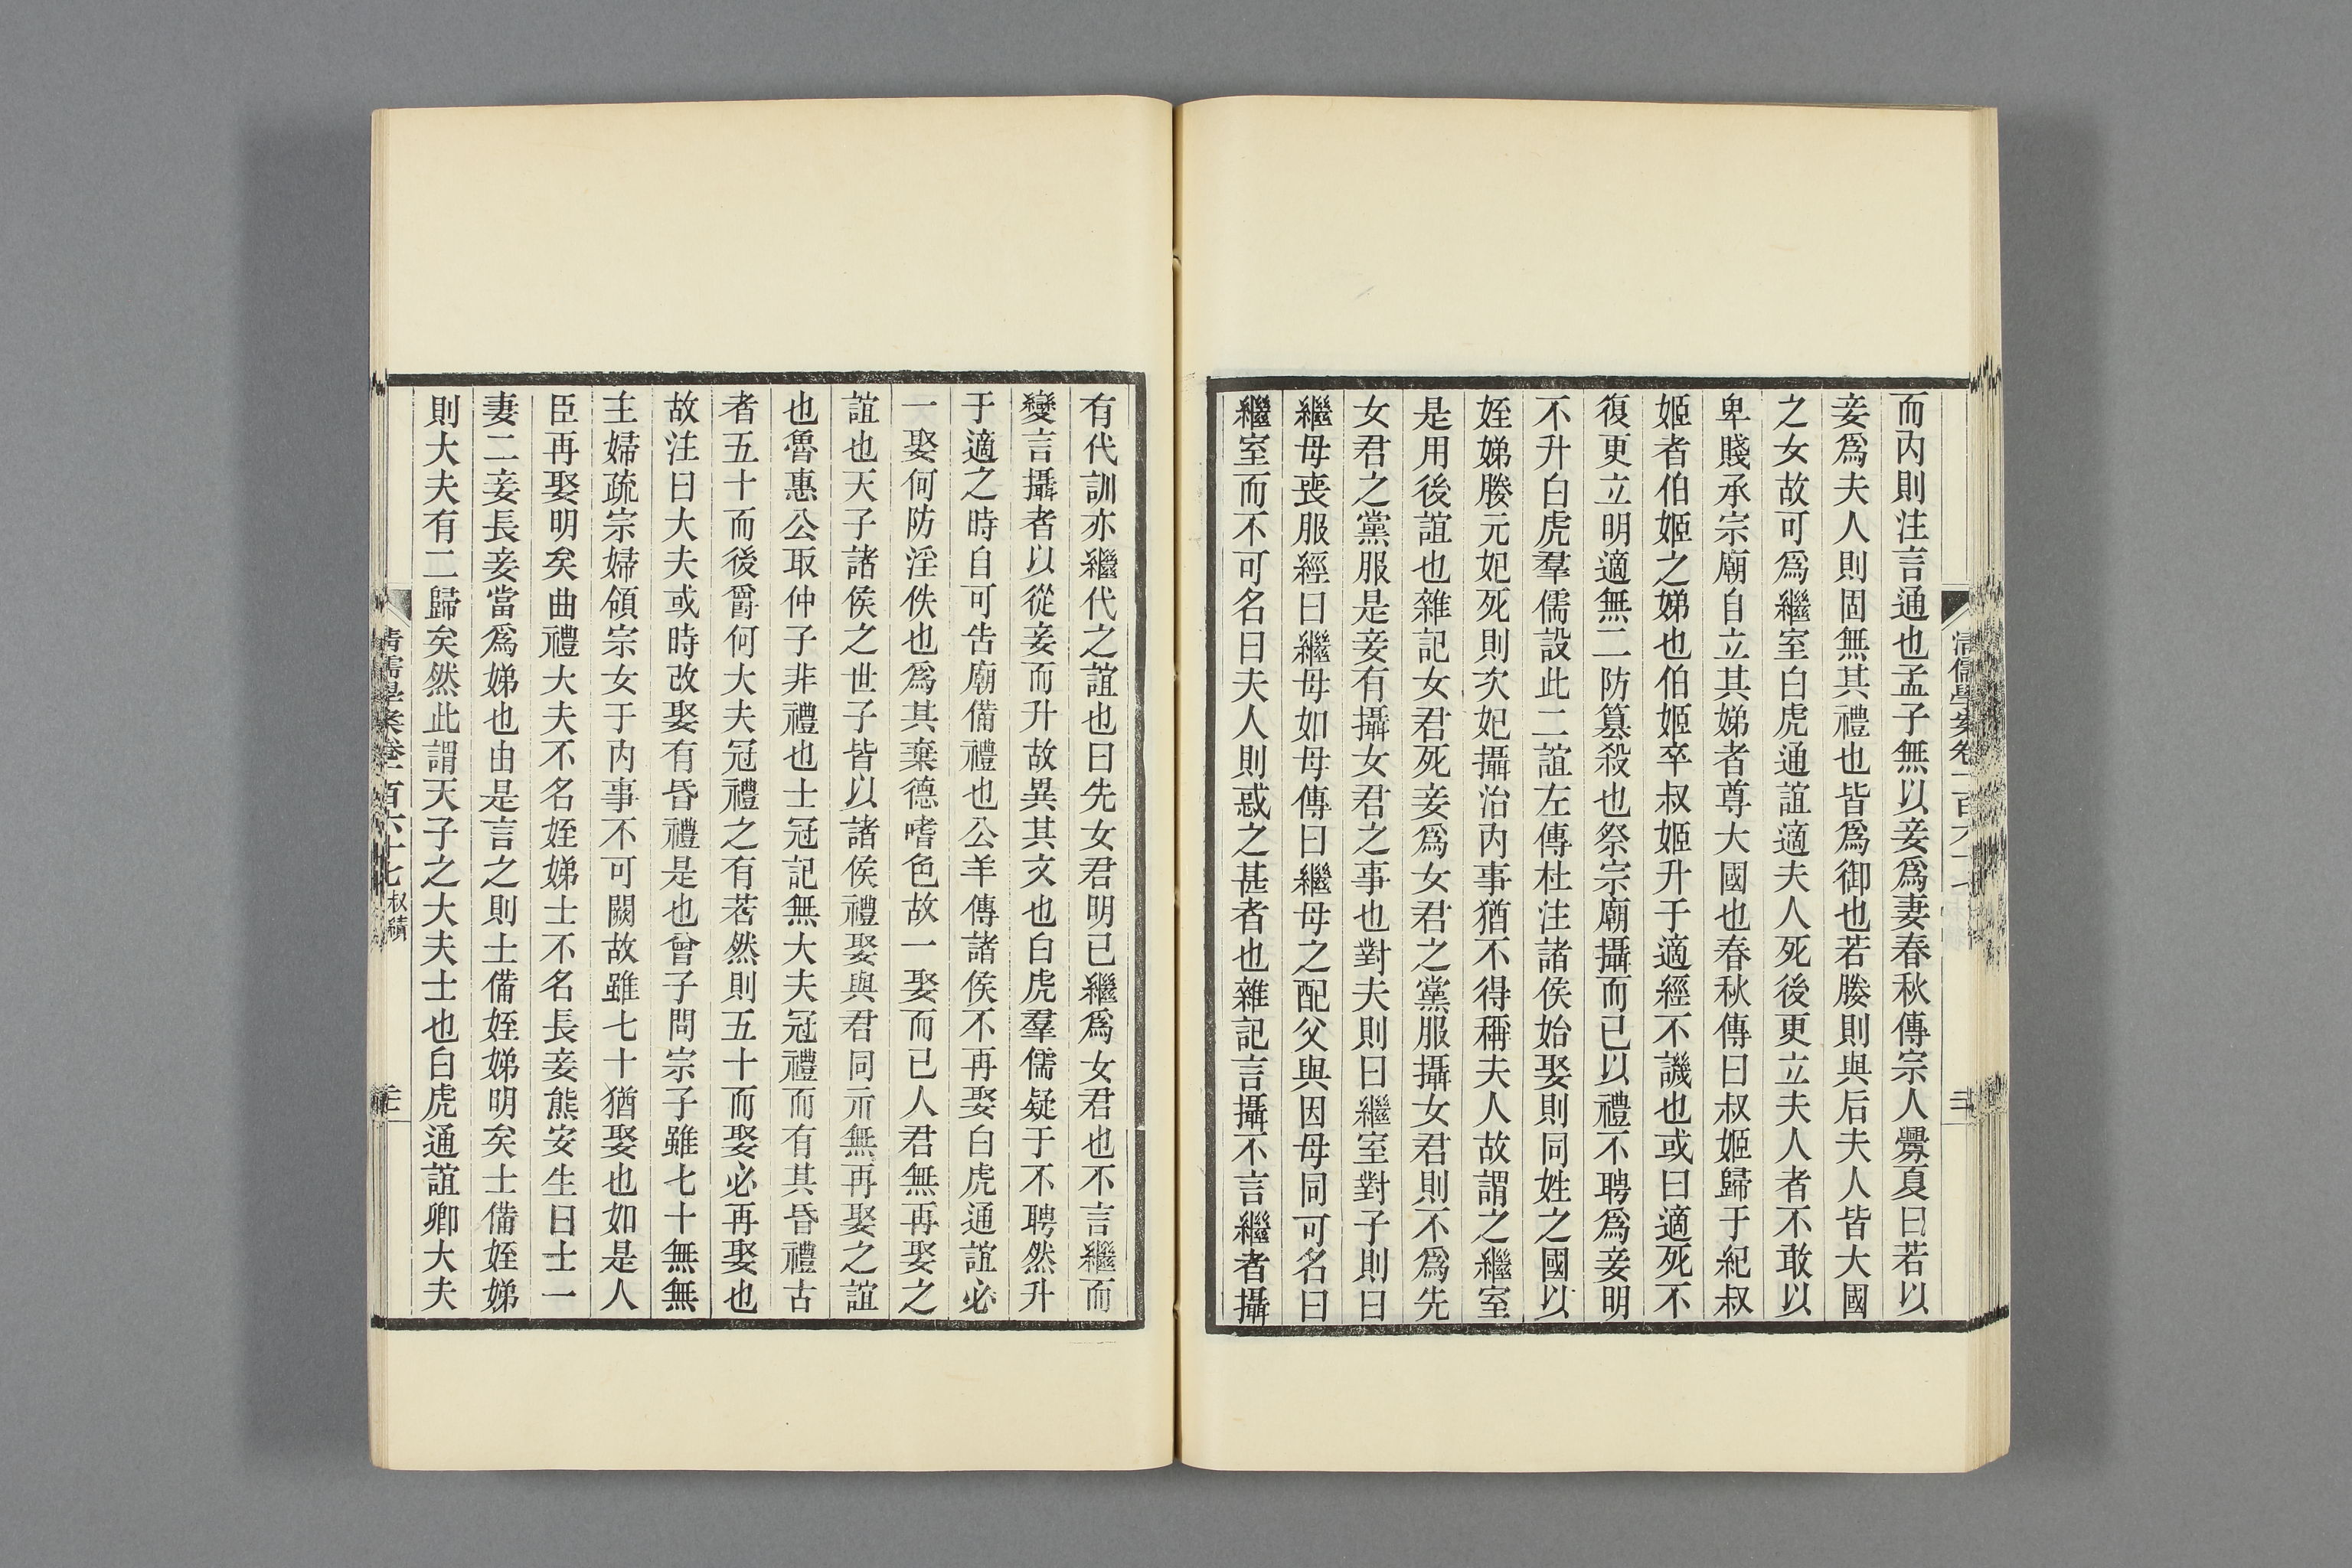 而內則注言通也孟子無以妾爲妻春秋傳宗人釁夏曰若以
妾爲夫人則固無其禮也皆爲御也若媵則與后夫人皆大國
之女故可爲繼室白虎通誼適夫人死後更立夫人者不敢以
卑賤承宗廟自立其娣者尊大國也春秋傳曰叔姬歸于紀叔
姬者伯姬之娣也伯姬卒叔姬升于適經不譏也或曰適死不
復更立明適無二防篡殺也祭宗廟攝而已以禮不聘爲妾明
不升白虎羣儒設此二誼左傳杜注諸侯始娶則同姓之國以
姪娣媵元妃死則次妃攝治內事猶不得稱夫人故謂之繼室
是用後誼也雜記女君死妾爲女君之黨服攝女君則不爲先
女君之黨服是妾有攝女君之事也對夫則曰繼室對子則曰
繼母喪服經曰繼母如母傳曰繼母之配父與因母同可名曰
繼室而不可名曰夫人則惑之甚者也雜記言攝不言繼者攝
有代訓亦繼代之誼也曰先女君明已繼爲女君也不言繼而
變言攝者以從妾而升故異其文也白虎羣儒疑于不聘然升
于適之時自可告廟備禮也公羊傳諸侯不再娶白虎通誼必
一娶何防淫佚也爲其棄德嗜色故一娶而已人君無再娶之
誼也天子諸侯之世子皆以諸侯禮娶與君同示無再娶之誼
也魯惠公取仲子非禮也士冠記無大夫冠禮而有其昏禮古
者五十而後爵何大夫冠禮之有若然則五十而娶必再娶也
故注曰大夫或時改娶有昏禮是也曾子問宗子雖七十無無
主婦疏宗婦領宗女于內事不可闕故雖七十猶娶也如是人
臣再娶明矣曲禮大夫不名姪娣士不名長妾熊安生曰士一
妻二妾長妾當爲娣也由是言之則士備姪娣明矣士備姪娣
則大夫有二歸矣然此謂天子之大夫士也白虎通誼卿大夫
清儒學案卷一百六十七 叔績